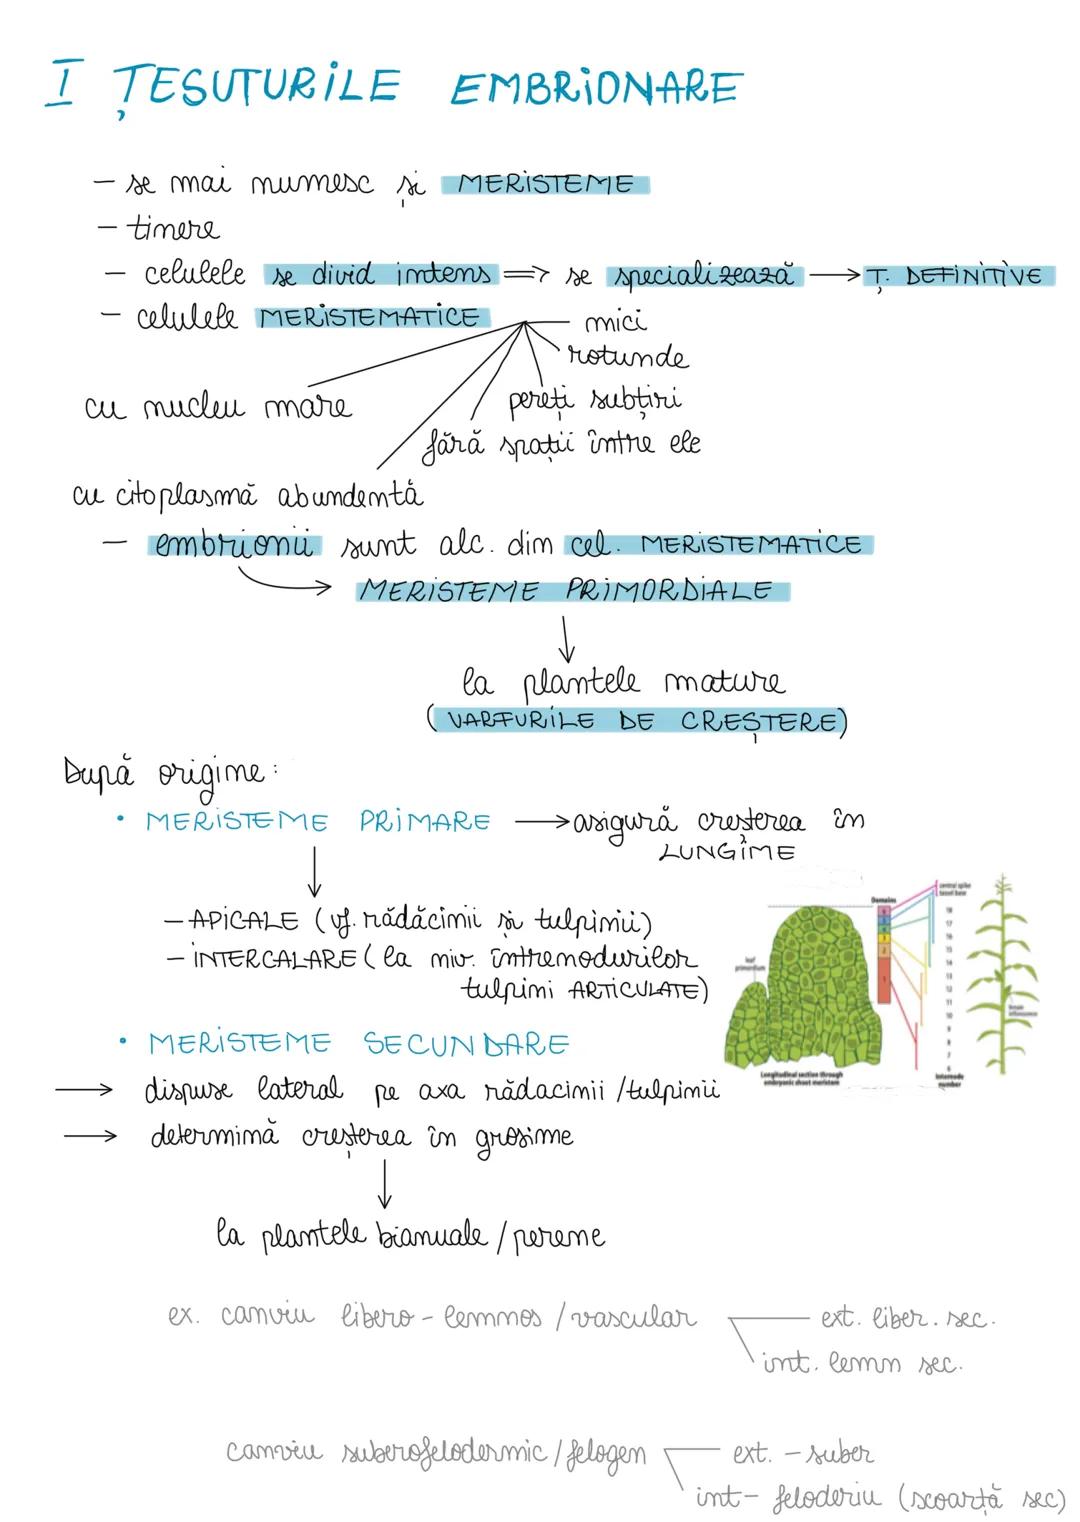 I ȚESUTURILE EMBRIONARE
– se mai numesc și MERISTEME
– tinere
– celulele se divid intens => se specializează → Ț. DEFINITIVE
– celulele MERISTEMATICE
mici
rotunde
cu nucleu mare
pereți subțiri
fără spații între ele
cu citoplasmă abundentă
– embrionii sunt alc. din cel. MERISTEMATICE
→ MERISTEME PRIMORDIALE
↓
la plantele mature
(VARFURILE DE CREȘTERE)
După origine:
• MERISTEME PRIMARE → asigură creșterea în
LUNGIME
↓
– APICALE (vf. rădăcinii și tulpinii)
– INTERCALARE (la niv. internodurilor
tulpini ARTICULATE)
leaf
primordium
Longitudinal section through
embryonic shoot meristem
Domains
central spike
tassel base
18
17
16
15
14
13
12
11
10
9
8
7
6
Internode
number
• MERISTEME SECUNDARE
→ dispuse lateral pe axa rădacinii / tulpinii
→ determină creșterea în grosime
↓
la plantele bianuale / perene
ex. canviu libero-lemnos / vascular
ext. liber. sec.
int. lemn sec.
canviu suberofelodermic / felogen
ext. – suber
int – feloderiu (scoarță sec)